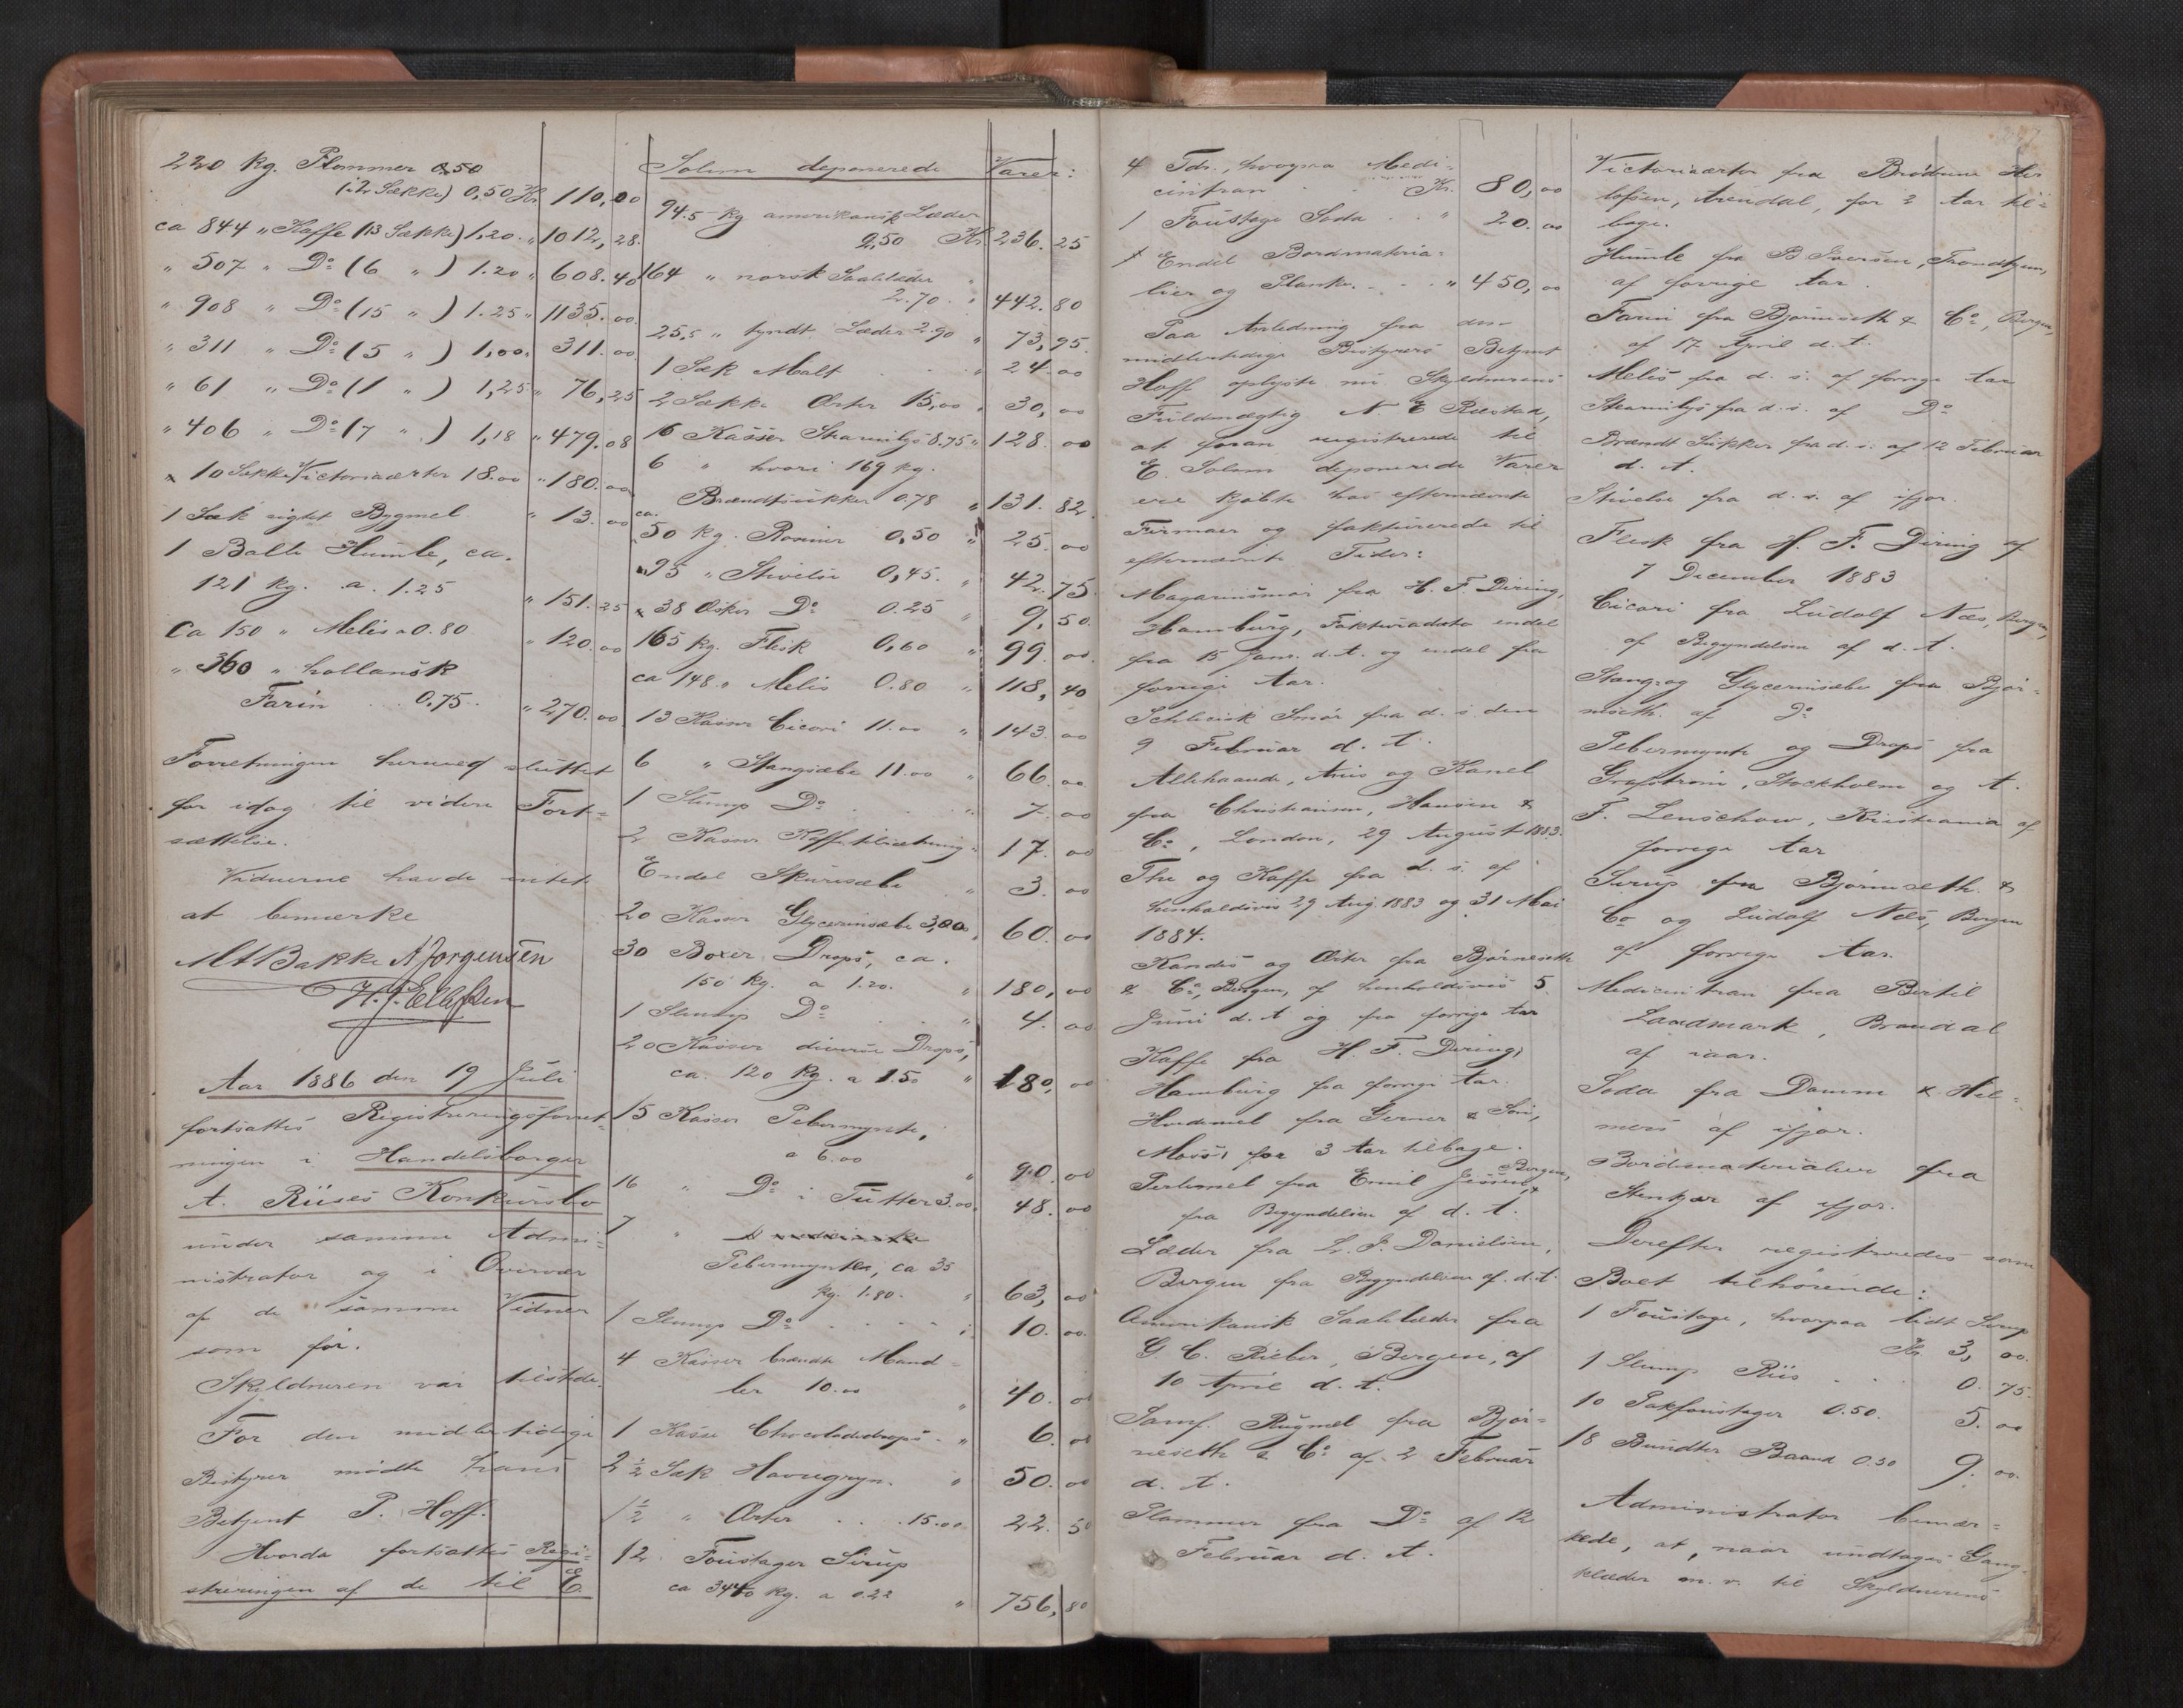 220 kg. Plommer 0,50
(i 2 Sække) 0,50 Kr. 110,00
ca 844 " Kaffe (13 Sække) 1,20. " 1012,28.
" 507 " Do (6 " ) 1.20 " 608.40
" 908 " Do (15 " ) 1.25 " 1135.00
" 311 " Do (5 " ) 1,00. 311.00
" 61 " Do (1 " ) 1,25 " 76,25
" 406 " Do (7 " ) 1,18 " 479.08
x 10 Sække Victoriaærter 18.00 " 180.00
1 Sæk sigtet Bygmel " 13.00
1 Balle Humle, ca.
121 kg. a. 1.25 " 151.25
Ca 150 " Melis a 0.80 " 120.00
" 360 " hollansk
Farin . . 0.75. " 270.00
Forretningen herved sluttet
for idag til videre Fort=
sættelse.
Vidnerne havde intet
at bemærke
M Bakke A Jørgensen
H. J. Ellefsen
Aar 1886 den 19 Juli
fortsattes Registreringsforret=
ningen i Handelsborger
A. Riises Konkursbo
under samme Admi=
nistrator og i Overvær
af de samme Vidner
som før.
Skyldneren var tilstede.
For den midlertidige
Bestyrer mødte hans
Betjent P. Hoff.
Hvorda fortsattes Regi=
streringen af de til E.
Solem deponerede Varer:
94.5 kg amerikansk Læder
2,50 Kr. 236.25
164 " norsk Saalelæder
2.70. " 442.80
25,5 " tyndt Læder 2.90 " 73,95.
1 Sæk Malt . . " 24.00
2 Sække Ærter 15,00 " 30,00
16 Kasser Stearinlys 8,75 " 128.00
6 " hvori 169 kg.
Brændtsukker 0.78 " 131.82.
ca. 50 kg. Rosiner 0,50 " 25.00
" 95 " Stivelse 0,45. " 42.75.
x 38 Æsker Do 0.25 " 9,50.
165 kg. Flesk 0,60 " 99.00.
ca 148. " Melis 0.80 " 118,40
13 Kasser Cicori 11.00 " 143.00
6 " Stangsæbe 11.00 " 66.00
1 Slump Do . . " 7.00
2 Kasser Kaffetilsætning " 17.00
Endel Skuresæbe " 3.00
20 Kasser Glycerinsæbe 3,00 " 60.00
30 Boxer Drops, ca.
150 kg. a 1.20. " 180,00
1 Slump Do . . " 4.00
20 Kasser diverse Drops,
ca. 120 kg. a 1.50 " 180,00
15 Kasser Pebermynte,
a 6.00 " 90.00
16 " Do i Tutter 3.00. 48.00
7 "
Pebermynte, ca 35
kg. 1.80. " 63,00
1 Slump Do . . . . " 10.00.
4 Kasser brændte Mand=
ler 10.00 " 40.00
1 Kasse Chocoladedrops . " 6.00
2 1/2 Sæk Havregryn. " 50.00
1 1/2 " Ærter . . . 15.00 22.50
12. Foustager Sirup
ca 3440 kg. a 0.22 " 756,80
4 Tdr., hvorpaa Medi=
cintran . . Kr. 80,00
1 Foustage Soda . . " 20.00
x Endel Bordmateria=
lier og Planke. . . . " 450,00
Paa Anledning fra den
midlertidige Bestyrers Betjent
Hoff oplyste nu Skyldnerens
Fuldmægtig N E Riestad,
at foran registrerede til
E. Solem deponerede Varer
ere kjøbte hos efternævnte
Firmaer og fakturerede til
efternævnte Tider:
Magarinsmør fra H. F. Diring,
Hamburg, Fakturadato endel
fra 15 Janr. d. A. og endel fra
forrige Aar.
Schlesisk Smør fra d. s. den
9 Februar d. A.
Allehaande, Anis og Kanel
fra Christiansen, Hansen &
Co, London, 29 August 1883.
The og Kaffe fra d. s. af
henholdsvis 29 Aug. 1883 og 31 Mai
1884.
Kandis og Ærter fra Bjørneseth
& Co, Bergen, af henholdsvis 5.
Juni d. A og fra forrige Aar
Kaffe fra H. F. Diring,
Hamburg fra forrige Aar.
Hvedemel fra Gerner & Søn,
Moss, for 3 Aar tilbage.
Perlemel fra Emil Jessen, Bergen,
fra Begyndelsen af d. A.
Læder fra L. J. Danielsen,
Bergen fra Begyndelsen af d. A.
Amerikansk Saalelæder fra
G. C. Rieber, Bergen, af
10 April d. A.
Samf. Rugmel fra Bjør=
neseth & Co af 2 Februar
d. A.
Plommer fra Do af 12
Februar d. A.
Victoriaærter fra Brødrene Her
lofsen, Arendal, for 2 Aar til=
bage.
Humle fra B Iversen, Trondhjem,
af forrige Aar.
Farin fra Bjørneseth & Co, Bergen,
af 17 April d. A.
Melis fra d. s. af forrige Aar
Stearinlys fra d. s. af Do
Brændt Sukker fra d. s. af 12 Februar
d. A.
Stivelse fra d. s. af ifjor.
Flesk fra H. F. Diring af
7 December 1883
Cicori fra Ludolf Næs, Bergen,
af Begyndelsen af d. A.
Stang- og Glycerinsæbe fra Bjør=
neseth. af Do
Pebermynte og Drops fra
Grafstrøm, Stockholm og A.
F. Lenschow, Kristiania af
forrige Aar
Sirup fra Bjørneseth &
Co og Ludolf Næs, Bergen
af forrige Aar.
Medicintran fra Bertil
Landmark, Brandal
af iaar.
Soda fra Damm & Hel=
mers af ifjor.
Bordmaterialier fra
Stenkjær af ifjor.
Derefter registreredes som
Boet tilhørende:
1 Foustage, hvorpaa lidt Sirup
Kr 3,00.
1 Slump Riis . . . 0.75.
10 Pakfoustager 0.50. 5.00
18 Bundter Baand 0.50 9.00.
Administrator bemær=
kede, at, naar undtages Gang=
klæder m. v. til Skyldnerens